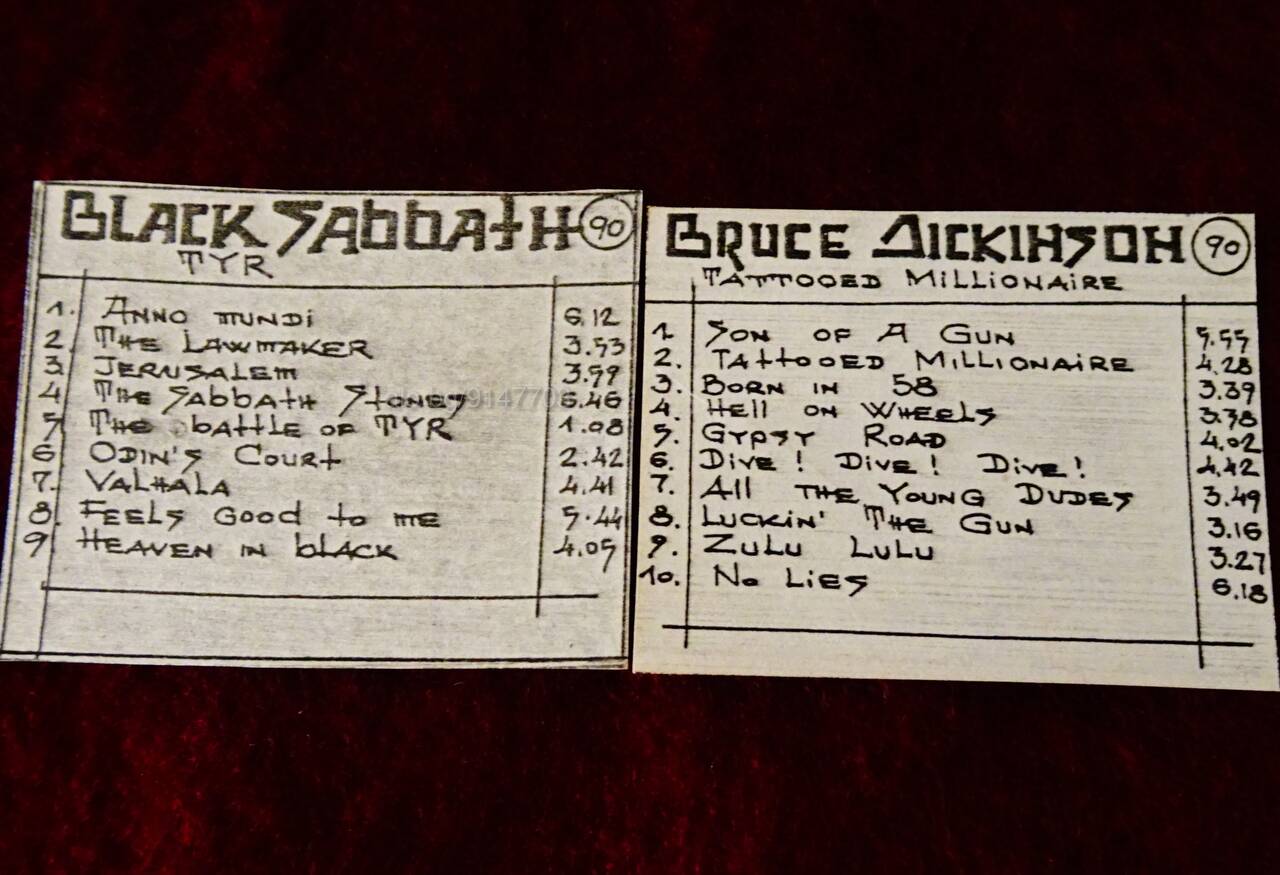 BLACK SABBATH 90
TYR
1. ANNO MUNDI 6.12
2. THE LAWMAKER 3.53
3. JERUSALEM 3.59
4 THE SABBATH STONES 6.46
5 THE BATTLE OF TYR 1.08
6 ODIN'S COURT 2.42
7. VALHALA 4.41
8. FEELS GOOD TO ME 5.44
9 HEAVEN IN BLACK 4.05
BRUCE DICKINSON 90
TATTOOED MILLIONAIRE
1. SON OF A GUN 5.55
2. TATTOOED MILLIONAIRE 4.28
3. BORN IN 58 3.39
4. HELL ON WHEELS 3.38
5. GYPSY ROAD 4.02
6. DIVE! DIVE! DIVE! 4.42
7. ALL THE YOUNG DUDES 3.49
8. LUCKIN' THE GUN 3.16
9. ZULU LULU 3.27
10. NO LIES 6.18